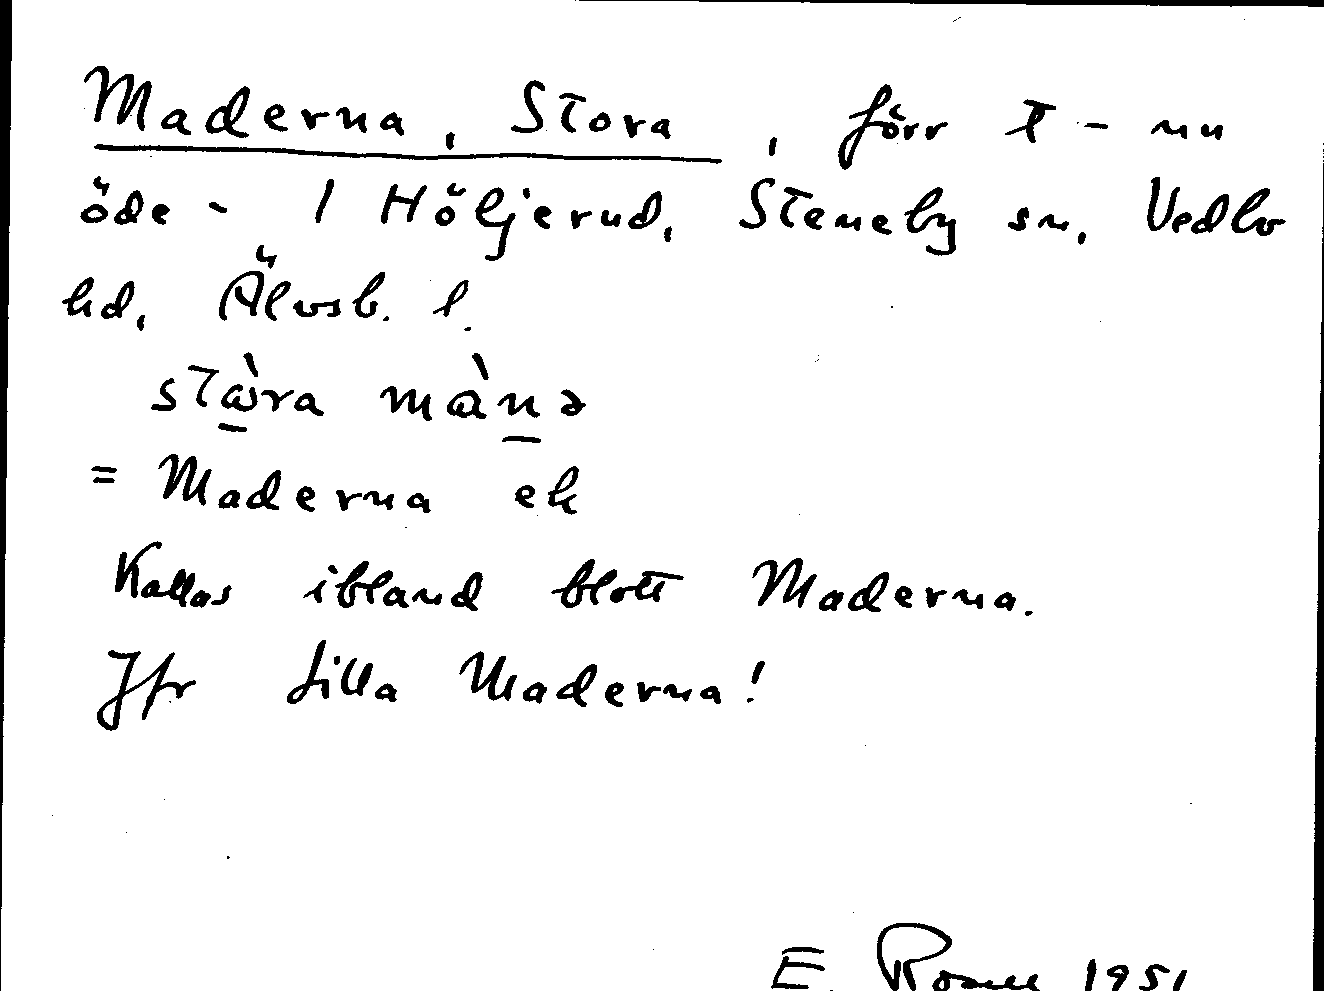 Maderna, Stora, förr T - nu
öde - I Höljerud, Steneby sn, Vedbo
hd, Älvsb. l.
stɷ̠̀ra màn̠ə
= Maderna ek
Kallas ibland blott Maderna.
Jfr Lilla Maderna!
E. 1951